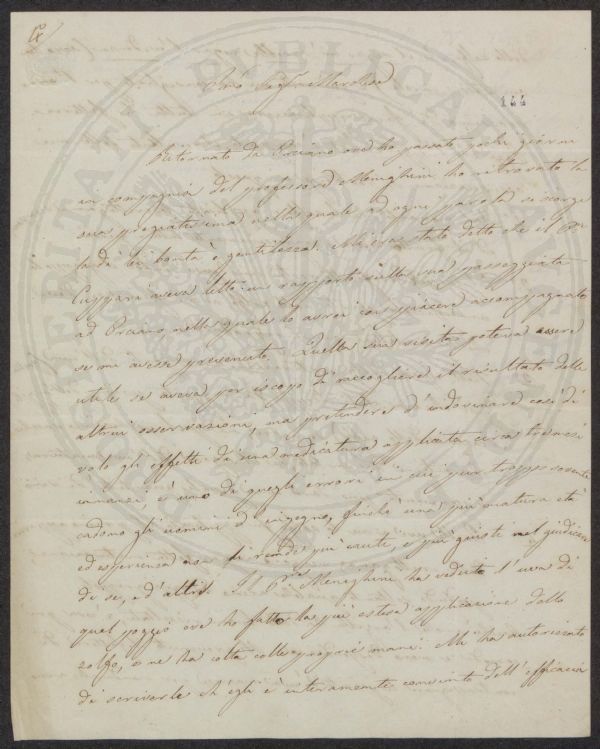 144
Ritornato da Orciano ove ho passato pochi giorni
in compagnia del professore Meneghini ho ritrovato la
sua pregiatissima nella quale ad ogni parola si scorge
la di lei bontà e gentilezza. Mi era stato detto che il Pr
Cuppari aveva letto un rapporto sulla sua passeggiata
ad Orciano nella quale lo avrei con piacere accompagnato
se mi avesse prevenuto. Quella sua visita poteva essere
utile se aveva per iscopo di raccogliere il risultato delle
altrui osservazioni, ma pretendere d'indovinare così di
volo gli effetti di una medicatura applicata circa tre mesi
innanzi, è uno di quegli errori in cui pur troppo sovente
cadono gli uomini d'ingegno, finchè una più matura età
ed esperienza non li rende più cauti, e più giusti nel giudicar
di se, e d'altri. Il Pr Meneghini ha veduto l'uva di
quel poggio ove ho fatto la più estesa applicazione dello
zolfo, e ne ha colta colle proprie mani. Mi ha autorizzato
di scriverle ch'egli è interamente convinto dell'efficacia
PROSPERITATI PUBLICAE